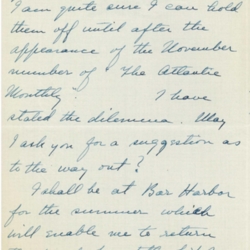 I am quite sure I can hold
them off until after the
appearance of the November
number of "The Atlantic
Monthly." I have
stated the dilemma. May
I ask you for a suggestion as
to the way out?
I shall be at Bar Harbor
for the summer which
will enable me to return